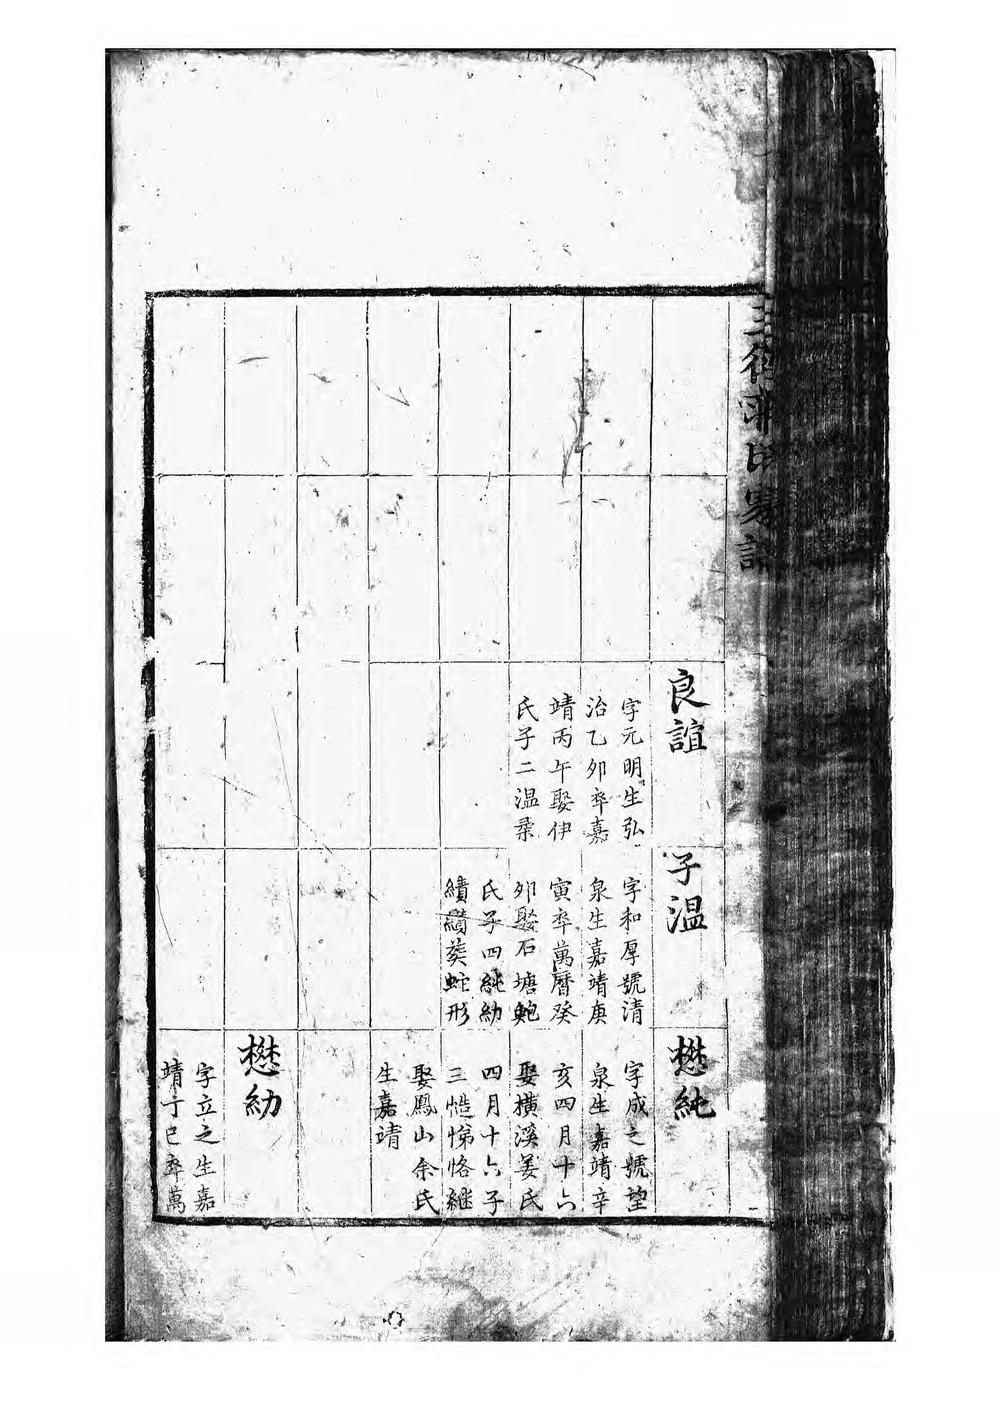 良誼
字元明生弘
治乙卯卒嘉
靖丙午娶伊
氏子二温柔
子温
字和厚號清
泉生嘉靖庚
寅卒萬曆癸
卯娶石塘鮑
氏子四純紉
績纘葬蛇形
懋純
字成之號望
泉生嘉靖辛
亥四月十六
娶橫溪姜氏
四月十六子
三慥悌恪継
娶鳳山余氏
生嘉靖
懋紉
字立之生嘉
靖丁巳卒萬